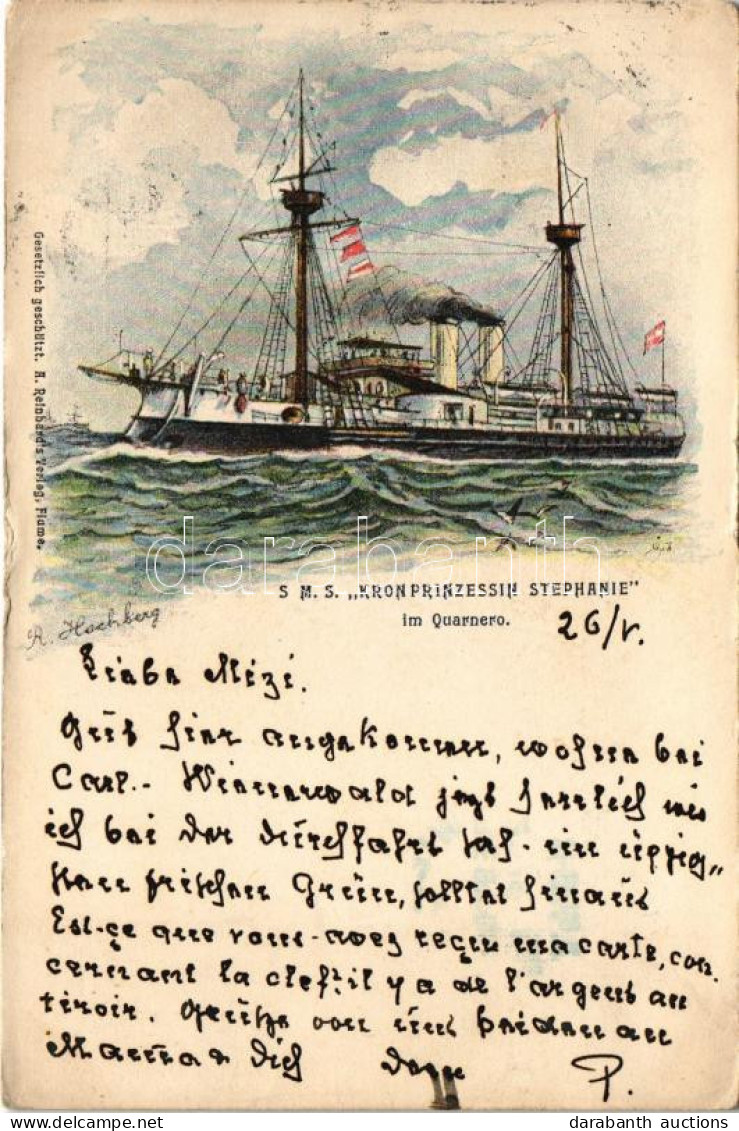 Gesetzlich geschützt. A. Reinhardt's Verlag, Fiume.
S M. S. „KRONPRINZESSIN STEPHANIE"
im Quarnero.
R. Hochberg
26/V.
Liebe Mizi.
Gut hier angekommen, wohnen bei
Carl.- Wienerwald jetzt herrlich wie
ich bei der Durchfahrt sah - im üppig„
sten frischen Grün, solltet hinaus
Est-çe que vous-avez reçu ma carte, con
cernant la clef? il y a de l'argent au
tiroir. Grüße von uns beiden an
Mama & Dich Dein P.
darabanth
© darabanth auctions